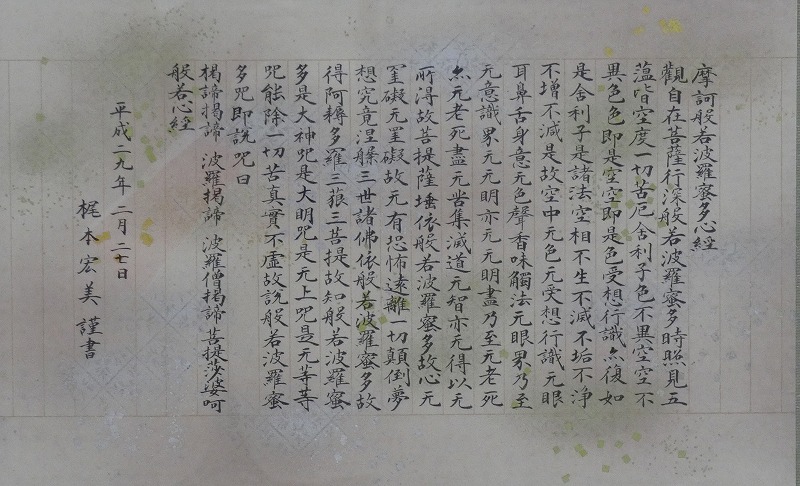 摩訶般若波羅蜜多心經
觀自在菩薩行深般若波羅蜜多時照見五
蘊皆空度一切苦厄舍利子色不異空空不
異色色即是空空即是色受想行識亦復如
是舍利子是諸法空相不生不滅不垢不淨
不增不減是故空中无色无受想行識无眼
耳鼻舌身意无色聲香味觸法无眼界乃至
无意識界无无明亦无无明盡乃至无老死
亦无老死盡无苦集滅道无智亦无得以无
所得故菩提薩埵依般若波羅蜜多故心无
罣礙无罣礙故无有恐怖遠離一切顛倒夢
想究竟涅槃三世諸佛依般若波羅蜜多故
得阿耨多羅三藐三菩提故知般若波羅蜜
多是大神咒是大明咒是无上咒是无等等
咒能除一切苦真實不虛故說般若波羅蜜
多咒即說咒曰
揭諦揭諦 波羅揭諦 波羅僧揭諦 菩提娑婆呵
般若心經
平成二九年 二月二七日
梶本宏美 謹書